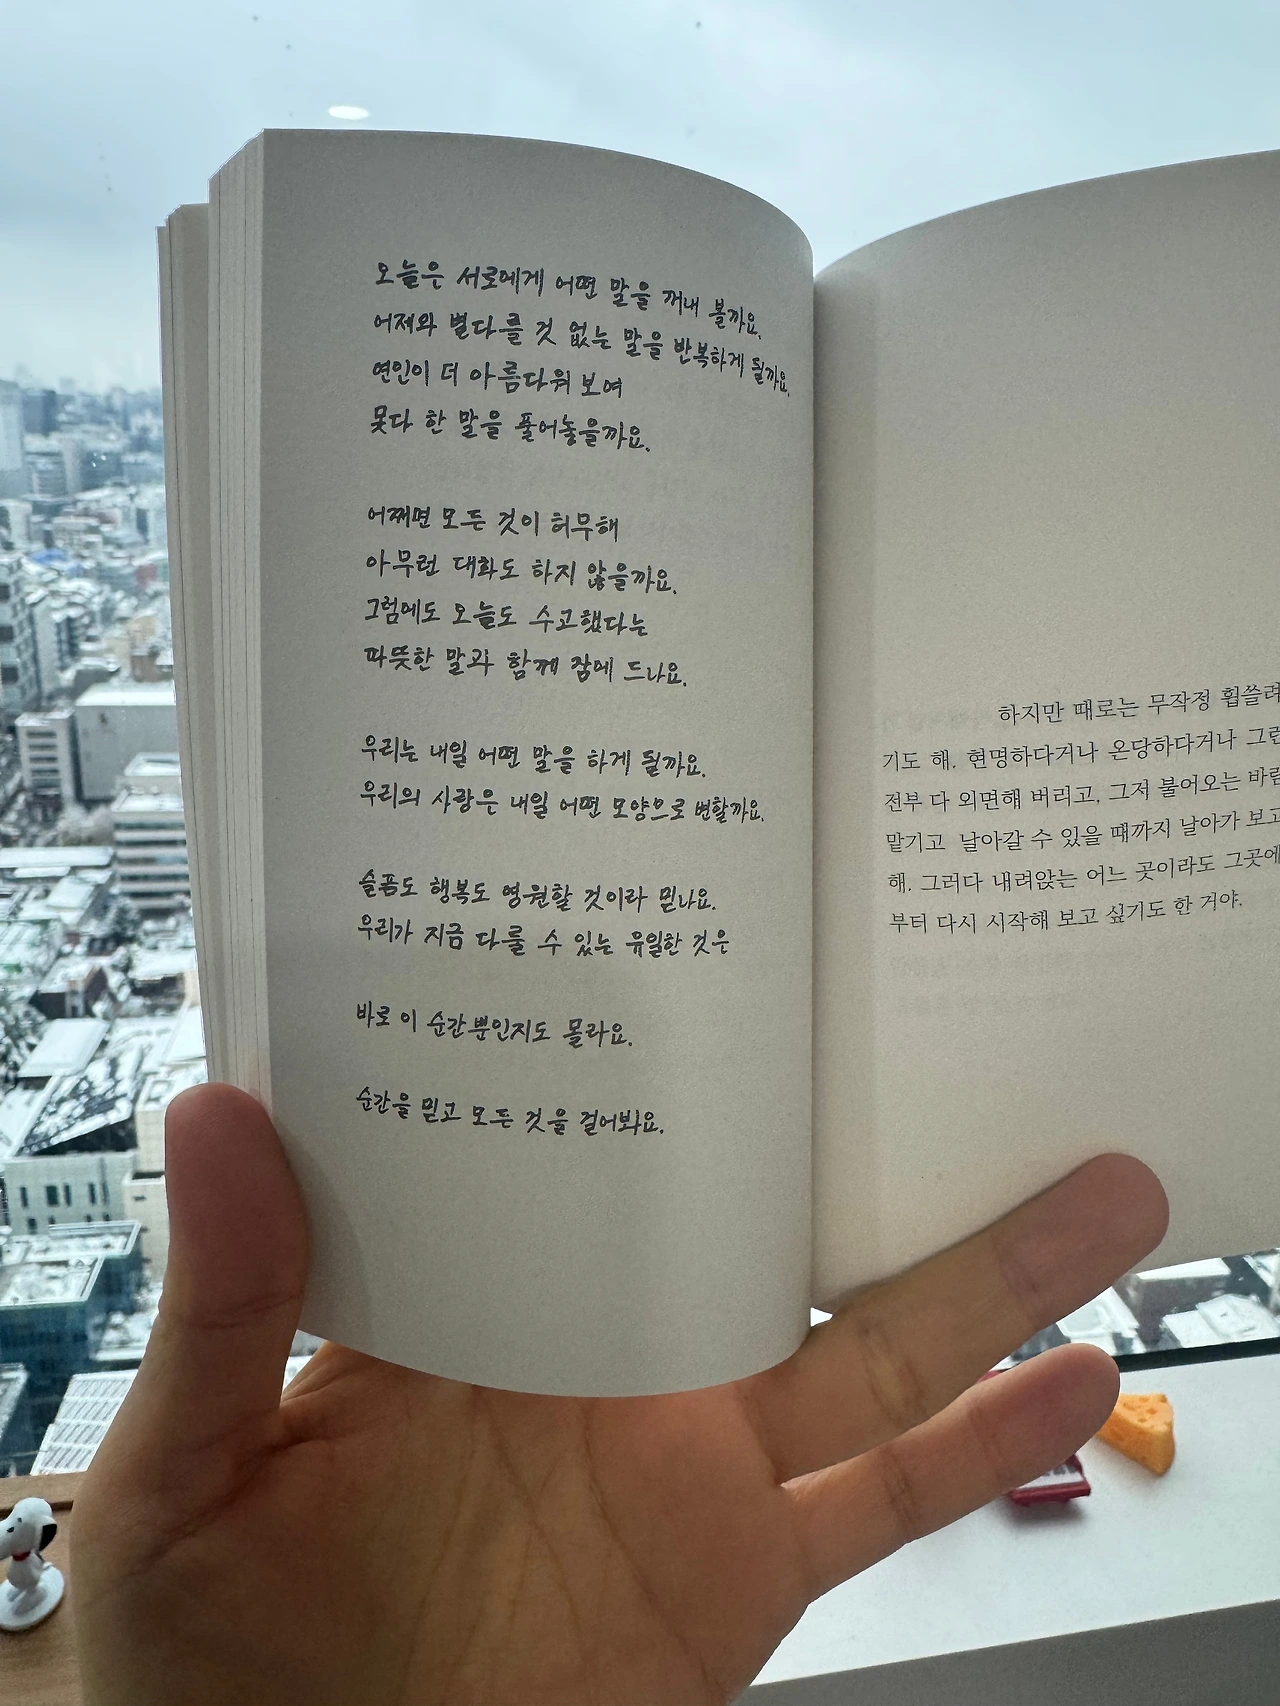 오늘은 서로에게 어떤 말을 꺼내 볼까요.
어제와 별다를 것 없는 말을 반복하게 될까요.
연인이 더 아름다워 보여
못다 한 말을 풀어놓을까요.
어쩌면 모든 것이 허무해
아무런 대화도 하지 않을까요.
그럼에도 오늘도 수고했다는
따뜻한 말과 함께 잠에 드나요.
우리는 내일 어떤 말을 하게 될까요.
우리의 사랑은 내일 어떤 모양으로 변할까요.
슬픔도 행복도 영원할 것이라 믿나요.
우리가 지금 다룰 수 있는 유일한 것은
바로 이 순간뿐인지도 몰라요.
순간을 믿고 모든 것을 걸어봐요.
하지만 때로는 무작정 휩쓸려
기도 해. 현명하다거나 온당하다거나 그런
전부 다 외면해 버리고, 그저 불어오는 바람
맡기고 날아갈 수 있을 때까지 날아가 보고
해. 그러다 내려앉는 어느 곳이라도 그곳에
부터 다시 시작해 보고 싶기도 한 거야.